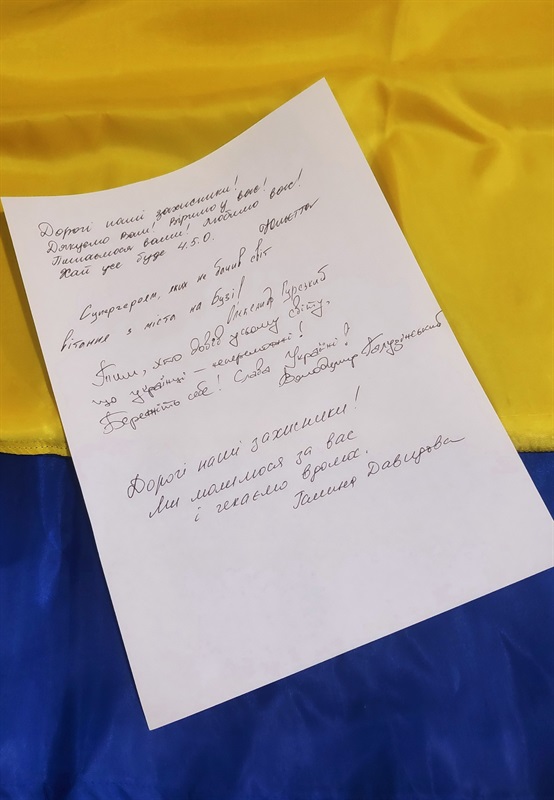 Дорогі наші захисники!
Дякуємо Вам! Віримо у вас!
Пишаємося вами! Любимо вас!
Хай усе буде 4.5.0.
Супергероям, яких не бачив світ
вітання з міста на Бузі!
Тим, хто довів усьому світу,
що українці – непереможні!
Бережіть себе! Слава Україні!
Володимир
Дорогі наші захисники!
Ми молимося за вас
і чекаємо вдома.
Галина Давидова